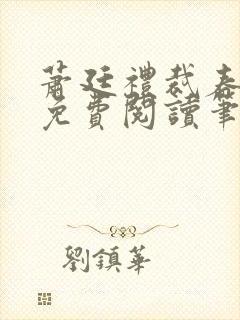 蕭廷禮裁春
免費閱讀筆
劉鎮華